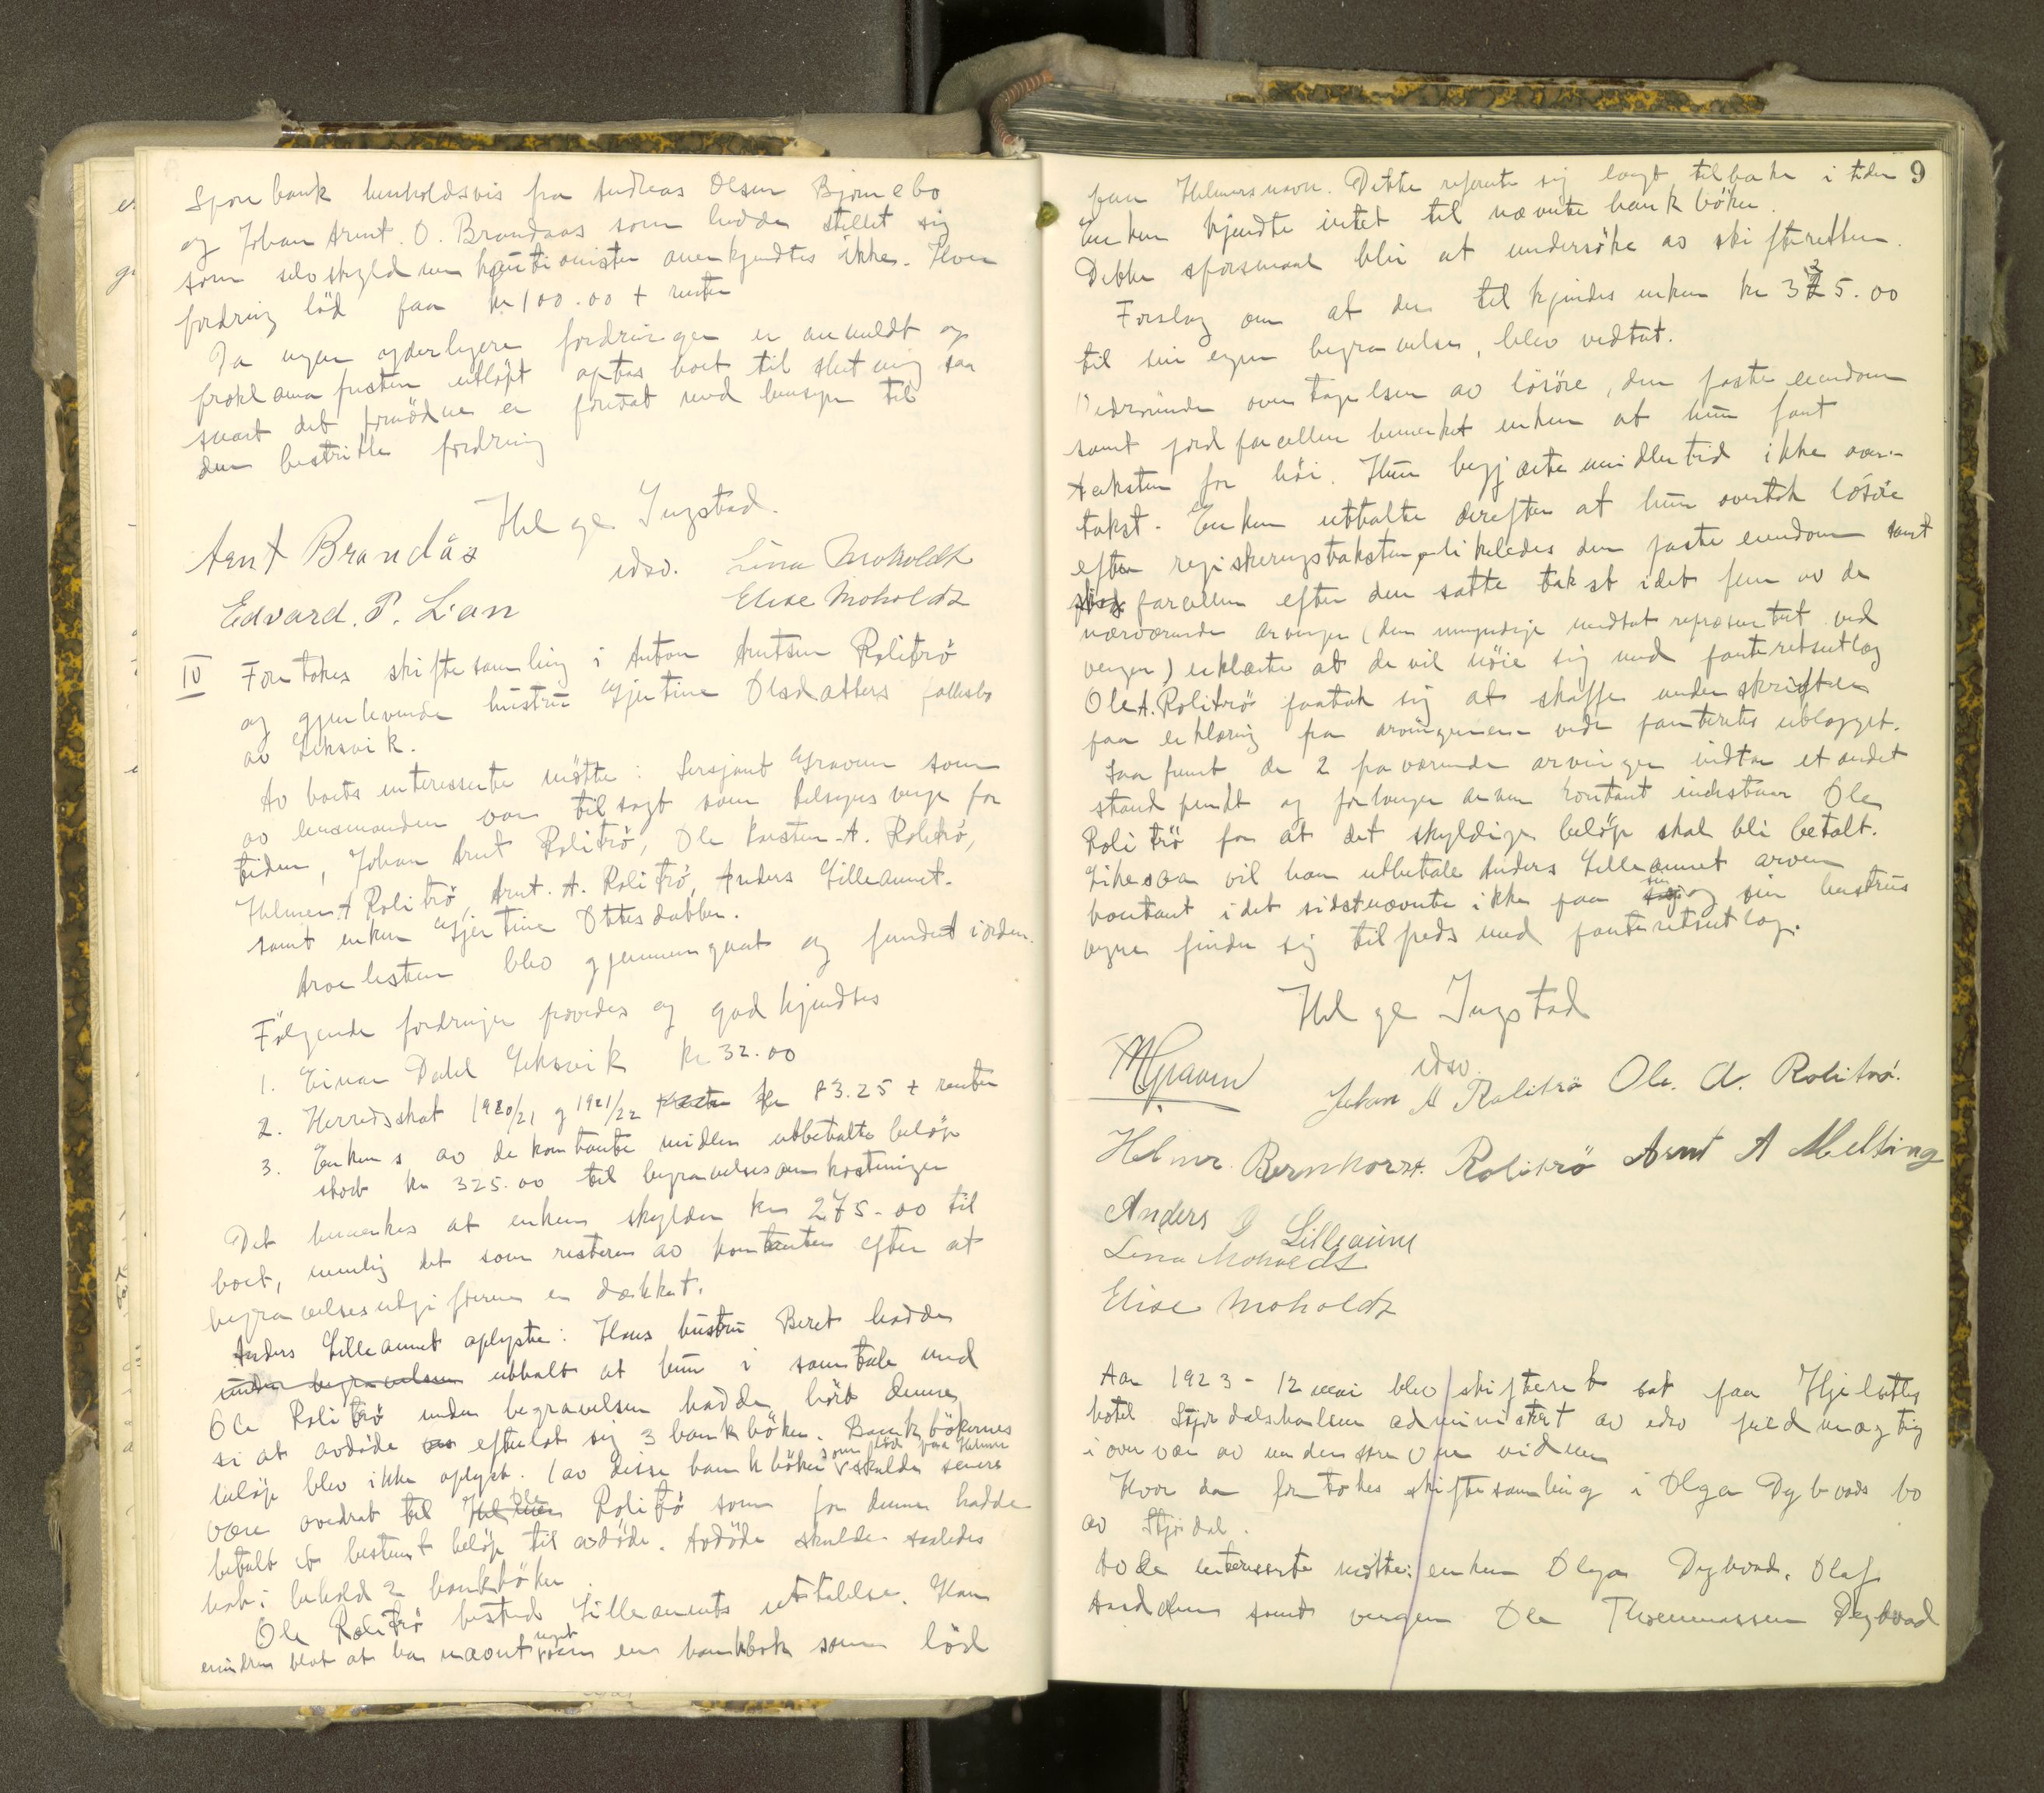 Sparebank henholdsvis fra Andreas Olsen Bjørnebo
og Johan Arnt. O. Brandaas som hadde stillet sig
som selvskyldnerkautionister anerkjendtes ikke. Hver
fordring löd paa kr 100.00 + renter
Da ingen yderligere fordringer er anmeldt og
proklamafristen utløpt optas boet til slutning saa
snart det fornödne er foretat med hensyn til
den bestridte fordring
Helge Ingstad.
Arnt Brandås
edsv. Lina Moholdt
Edvard. P. Lian
Elise Moholdt
IV Foretokes skiftesamling i Anton Arntsen Rolitrö
og gjenlevende hustru Gjertine Olsdatters fællesbo
av Leksvik.
Av boets interesserte mötte: Sersjant Graven som
av lensmanden var tilsagt som tilsynsverge for
tiden, Johan Arnt Rolitrö, Ole Kristen A. Rolitrö,
Helmer A Rolitrö, Arnt. A. Rolitrö, Anders Lilleaunet.
samt enken Gjertine Ottesdatter.
Arvelisten blev gjennemgaat og fundet i orden.
Følgende fordringer prøvedes og godkjendtes
1. Einar Dahl Leksvik kr 32.00
2. Herredsskat 1920/21 og 1921/22 kr 83.25 + renter
3. Enkens av de kontante midler utbetalte belöp
stort kr 325.00 til begravelsesomkostninger
Det bemerkes at enken skylder kr 275-00 til
boet, nemlig det som resterer av kontanten efter at
begravelsesutgifterne er dækket.
Anders Lilleaunet oplyste: Hans hustru Beret hadde
under begravelsen uttalt at hun i samtale med
Ole Rolitrö under begravelsen hadde hört denne
si at avdöde efterlot sig 3 bankböker. Bankbökernes
belöp blev ikke oplyst. 1 av disse bankböker som löd paa Helmer skulde senere
være overdrat til Helmer Ole Rolitrö som for denne hadde
betalt et bestemt belöp til avdöde. Avdöde skulde saaledes
hat i behold 2 bankböker.
Ole Rolitrö bestred Lilleaunets uttalelse. Han
erindrer blot at ha nævnt noget om en bankbok som löd
9
paa Helmers navn. Dette referte sig langt tilbake i tiden
Enken kjendte intet til nævnte bankböker.
Dette spörsmaal blir at undersöke av skifteretten.
Forslag om at der tilkjendes enken kr 325.00
til sin egen begravelse, blev vedtat.
Vedrörende overtagelsen av lösöre, den faste eiendom
samt jordparcellen bemerket enken at hun fant
taksten for höi. Hun begjærte imidlertid ikke over-
takst. Enken uttalte derefter at hun overtok lösöre
efter registreringstaksten, likeledes den faste eiendom samt
parcellen efter den satte takst idet fem av de
nærværende arvinger (den umyndige medtat repræsentert ved
vergen) erklærte at de vil nöie sig med panteretsutlæg
Ole A. Rolitrö paatok sig at skaffe underskriften
paa erklæring fra arvingerne vedr panteretsutlægget.
Saafremt de 2 fraværende arvinger indtar et andet
standpunkt og forlanger arven kontant indestaar Ole
Rolitrö for at det skyldige belöp skal bli betalt.
Likesaa vil han utbetale Anders Lilleaunet arven
kontant idet sidstnævnte ikke paa sin og sin hustrus
vegne finder sig tilfreds med panteretsutlæg.
Helge Ingstad
edsv.
MGraven
Johan A Rolitrö Ole. A. Rolitrö.
Helmer Bernhard A. Rolitrö Arnt A Melting
Anders J Lilleaune
Lina Moholdt
Elise Moholdt
Aar 1923 - 12 mai blev skifteret sat paa Hjelsettes
hotel Stjørdalshalsen administrert av edsv fuldmægtig
i overvær av underskrevne vidner
Hvor da foretokes skiftesamling i Olga Dybvads bo
av Stjördal.
Av de interesserte mötte: enken Olga Dybvad, Olaf
samt vergen Ole Thommassen Dybvad